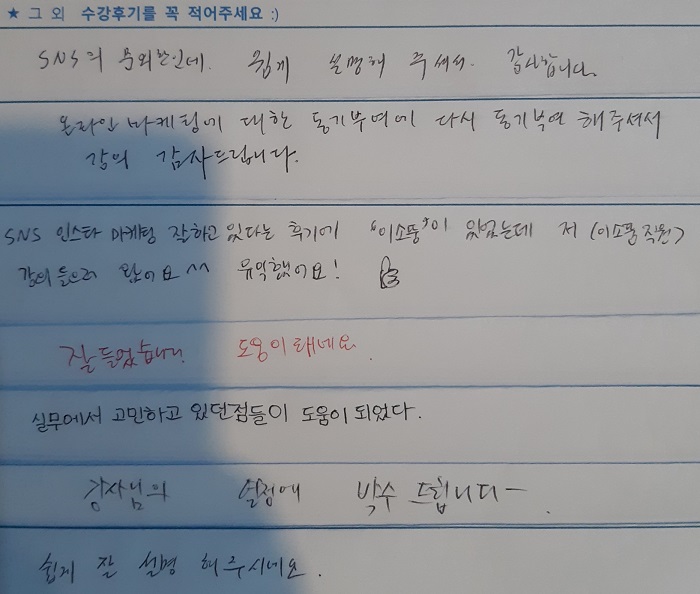 ★ 그 외 수강후기를 꼭 적어주세요 :)
SNS의 문외한인데. 쉽게 설명해 주셔서. 감사합니다.
온라인 마케팅에 대한 동기부여에 다시 동기부여 해주셔서
강의 감사드립니다.
SNS 인스타 마케팅 잘하고 있다는 후기에 "이소품"이 있었는데 저 (이소품 직원)
강의 들으러 왔어요 ^^ 유익했어요!
잘 들었습니다. 도움이 돼네요.
실무에서 고민하고 있던점들이 도움이 되었다.
강사님의 열정에 박수 드립니다~.
쉽게 잘 설명 해 주시네요.